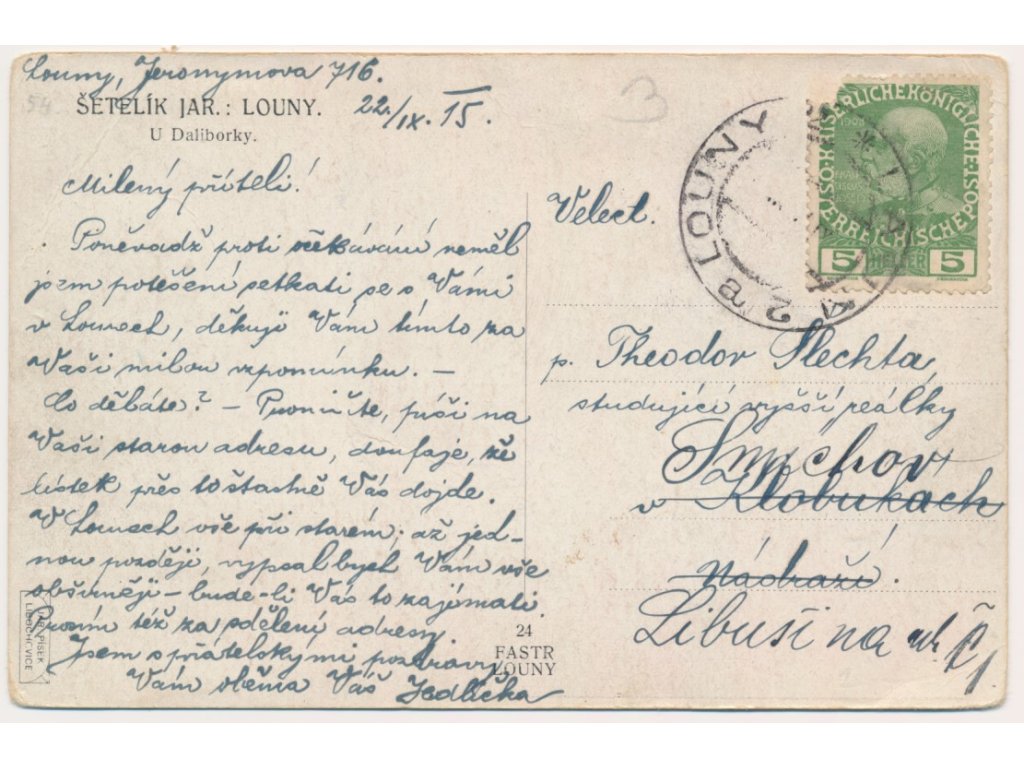 Louny, Jeronymova 716.
ŠETELÍK JAR.: LOUNY.
22./IX. 15.
U Daliborky.
Milený příteli!
Poněvadž proti očekávání neměl
jsem potěšení setkati se s Vámi
v Lounech, děkuji Vám tímto za
Vaši milou vzpomínku. –
Co děláte? – Promiňte, píši na
Vaši starou adresu, doufaje, že
lístek přes to šťastně Vás dojde.
V Lounech vše při starém; až jed-
nou později, vypsal bych Vám vše
obšírněji – bude-li Vás to zajímati.
Prosím též za sdělení adresy.
Jsem s přátelskými pozdravy
Vám oběma Váš Jedlička
JAR. PÍSEK
LIBOCHOVICE
24
FASTR
LOUNY
Velect.
p. Theodor Šlechta,
studující vyšší reálky
Smíchov
v Klobukách
Nádraží.
Libuší na
2a LOUNY
KAISERLICHE KÖNIGLICHE
ÖSTERREICHISCHE POST
1908
5 HELLER 5
3
54